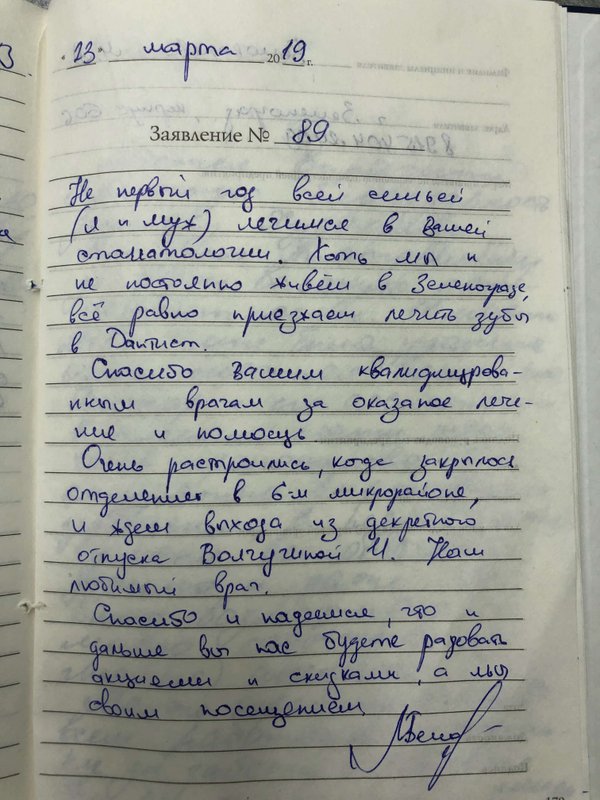 "13" марта 2019 г.
Заявление № 89
Не первый год всей семьёй
(я и муж) лечимся в Вашей
стоматологии. Хоть мы и
не постоянно живём в Зеленограде,
всё равно приезжаем лечить зубы
в Дантист.
Спасибо Вашим квалифицирова-
нным врачам за оказаное лече-
ние и помощь
Очень растроились, когда закрылось
отделение в 6-м микрорайоне,
и ждем выхода из декретного
отпуска Волчугиной И. Наш
любимый врач.
Спасибо и надеемся, что и
дальше вы нас будете радовать
акциями и скидками, а мы
своим посещением